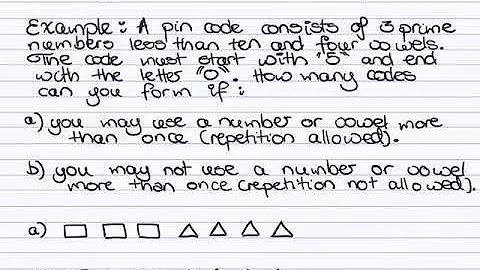 Example: A pin code consists of 3 prime
numbers less than ten and four vowels.
The code must start with "5" and end
with the letter "O". How many codes
can you form if:
a) you may use a number or vowel more
than once (repetition allowed).
b) you may not use a number or vowel
more than once (repetition not allowed).
a)